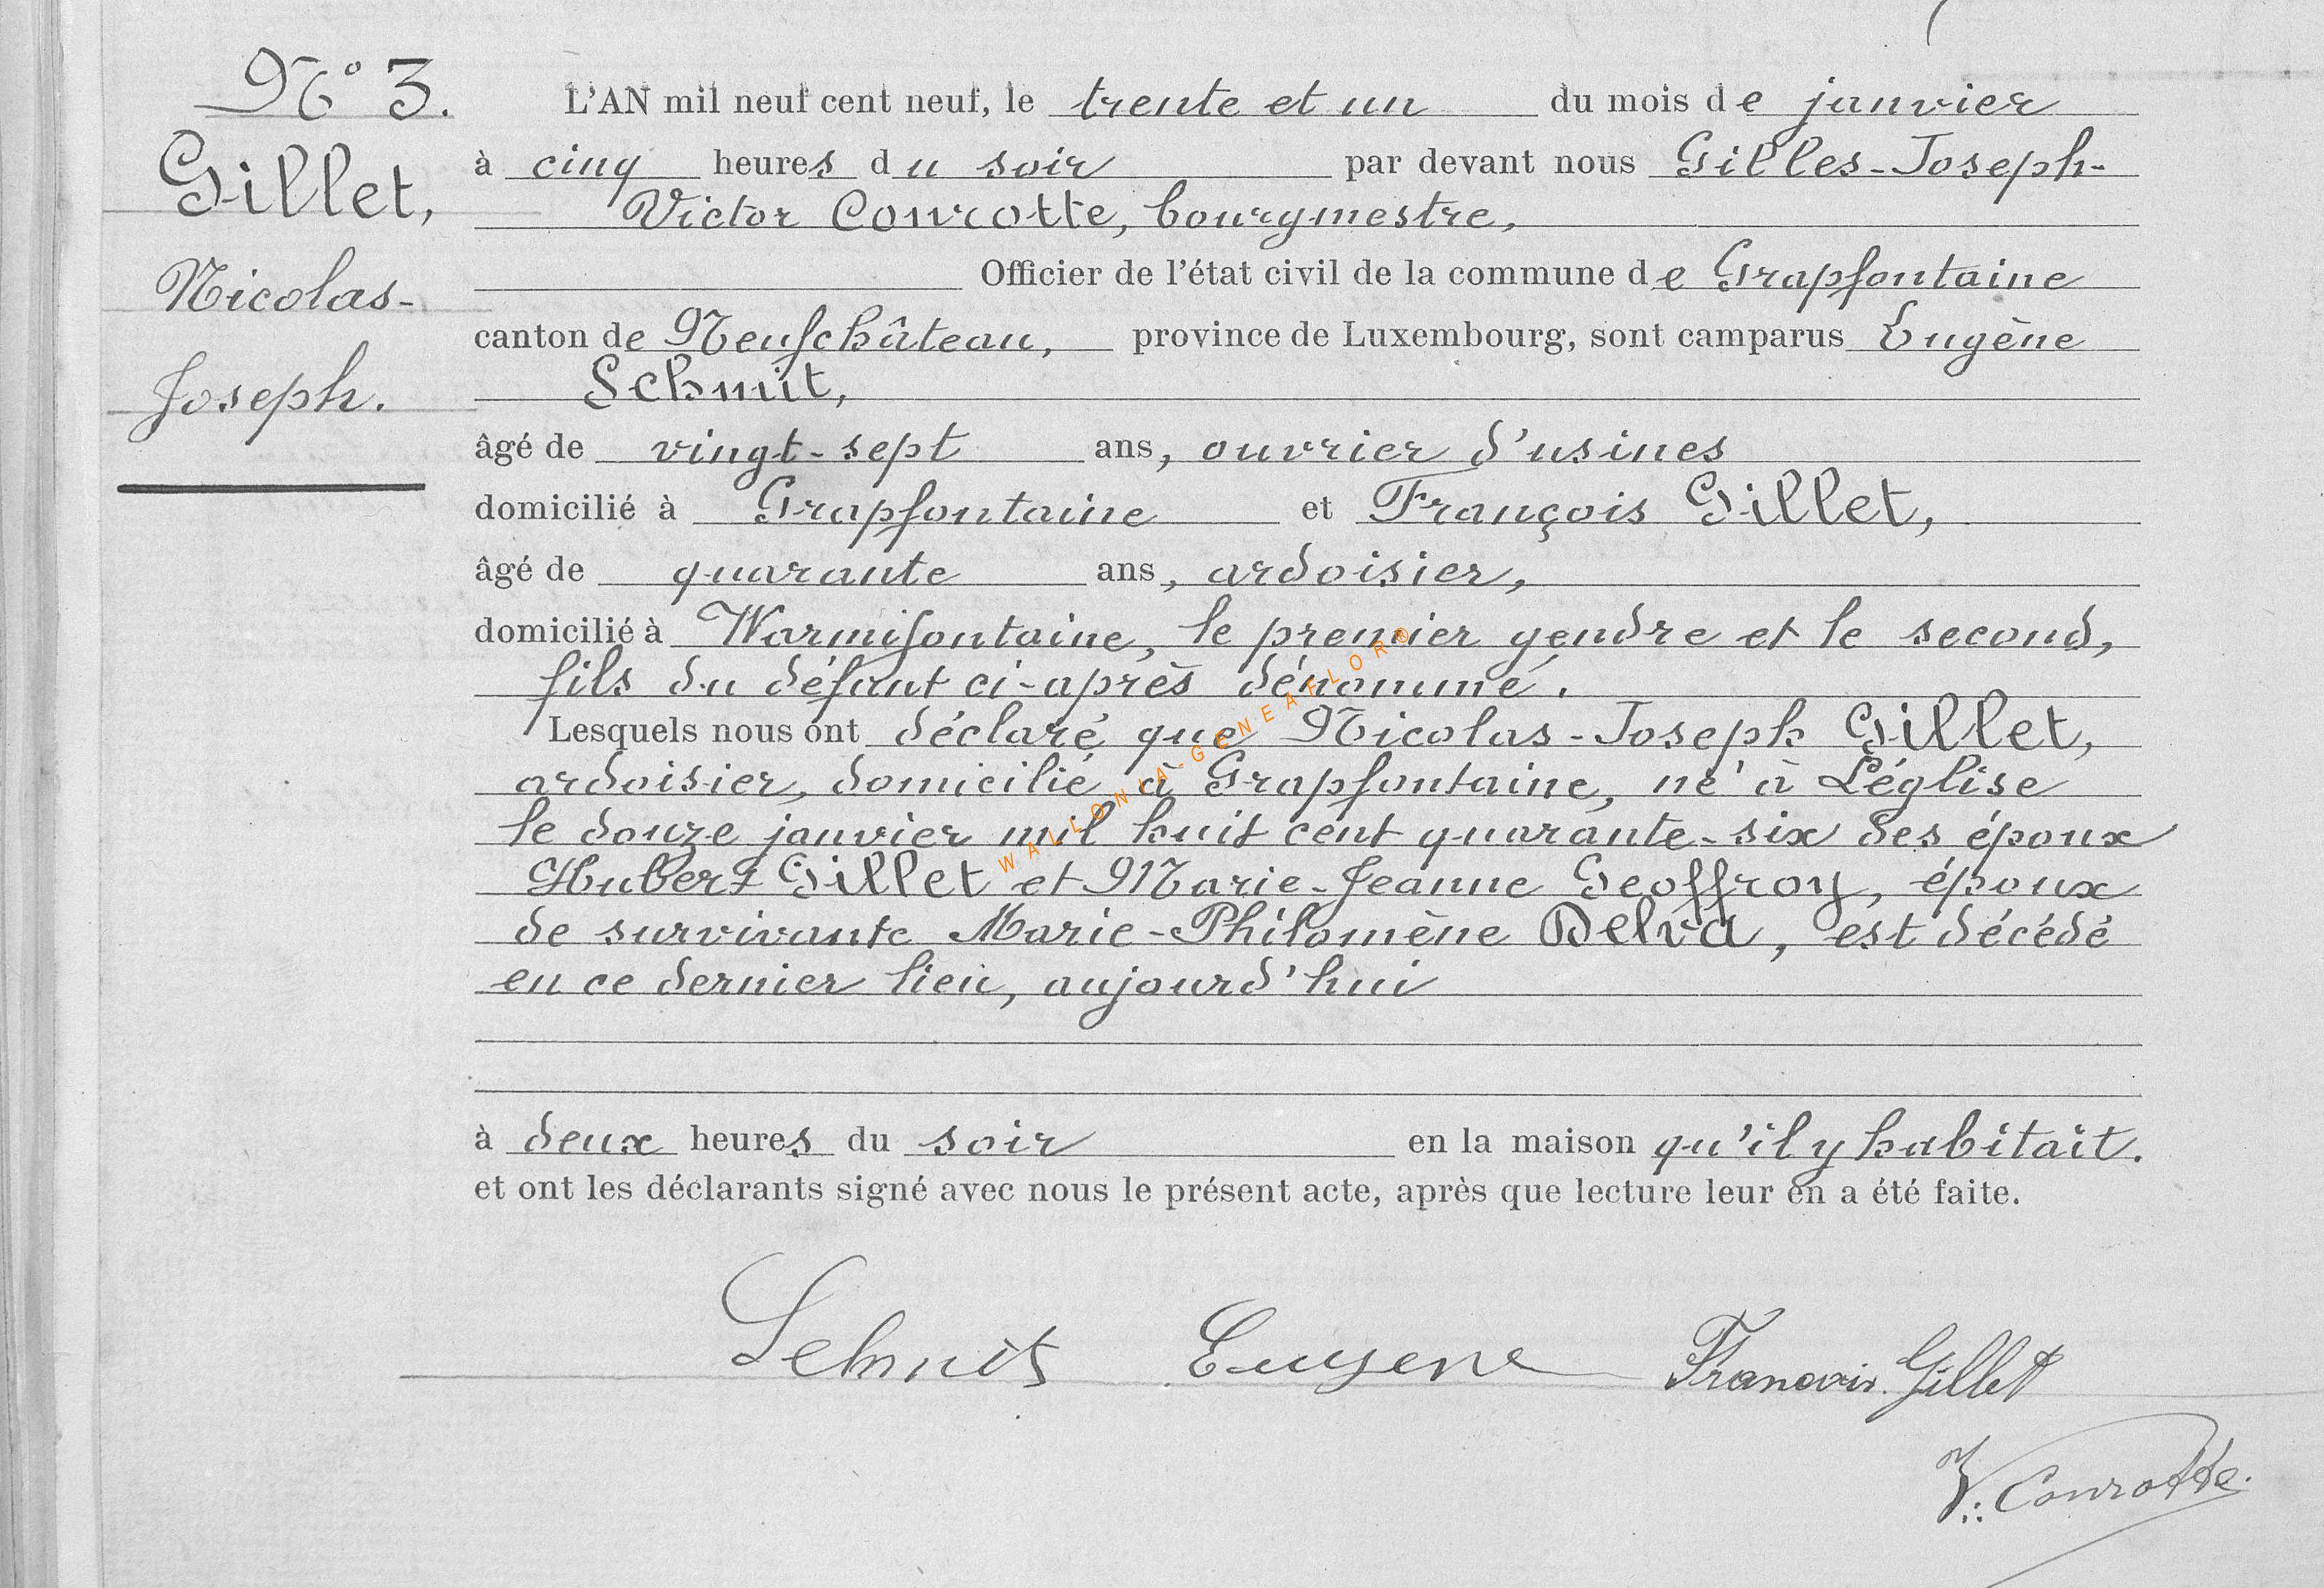 N° 3.
Gillet,
Nicolas-
Joseph.
L'AN mil neuf cent neuf, le trente et un du mois de janvier
à cinq heures du soir par devant nous Gilles-Joseph-
Victor Conrotte, bourgmestre,
Officier de l'état civil de la commune de Grapfontaine
canton de Neufchâteau, province de Luxembourg, sont camparus Eugène
Schmit,
âgé de vingt-sept ans, ouvrier d'usines
domicilié à Grapfontaine et François Gillet,
âgé de quarante ans, ardoisier,
domicilié à Warmifontaine, le premier gendre et le second,
fils du défunt ci-après dénommé.
Lesquels nous ont déclaré que Nicolas-Joseph Gillet,
ardoisier, domicilié à Grapfontaine, né à Léglise
le douze janvier mil huit cent quarante-six des époux
Hubert Gillet et Marie-Jeanne Geoffroy, époux
de survivante Marie-Philomène Delva, est décédé
en ce dernier lieu, aujourd'hui
à deux heures du soir en la maison qu'il y habitait.
et ont les déclarants signé avec nous le présent acte, après que lecture leur en a été faite.
Schmit Eugene François Gillet
V. Conrotte.
WALLONIA-GENEAFLOR©